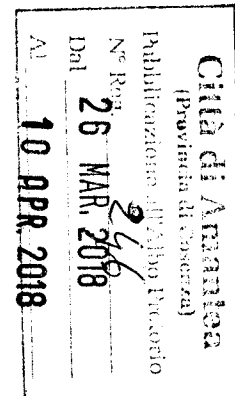 Città di Amantea
(Provincia di Cosenza)
Pubblicazione all'Albo Pretorio
N° Reg.
Dal 26 MAR. 2018
Al 10 APR. 2018